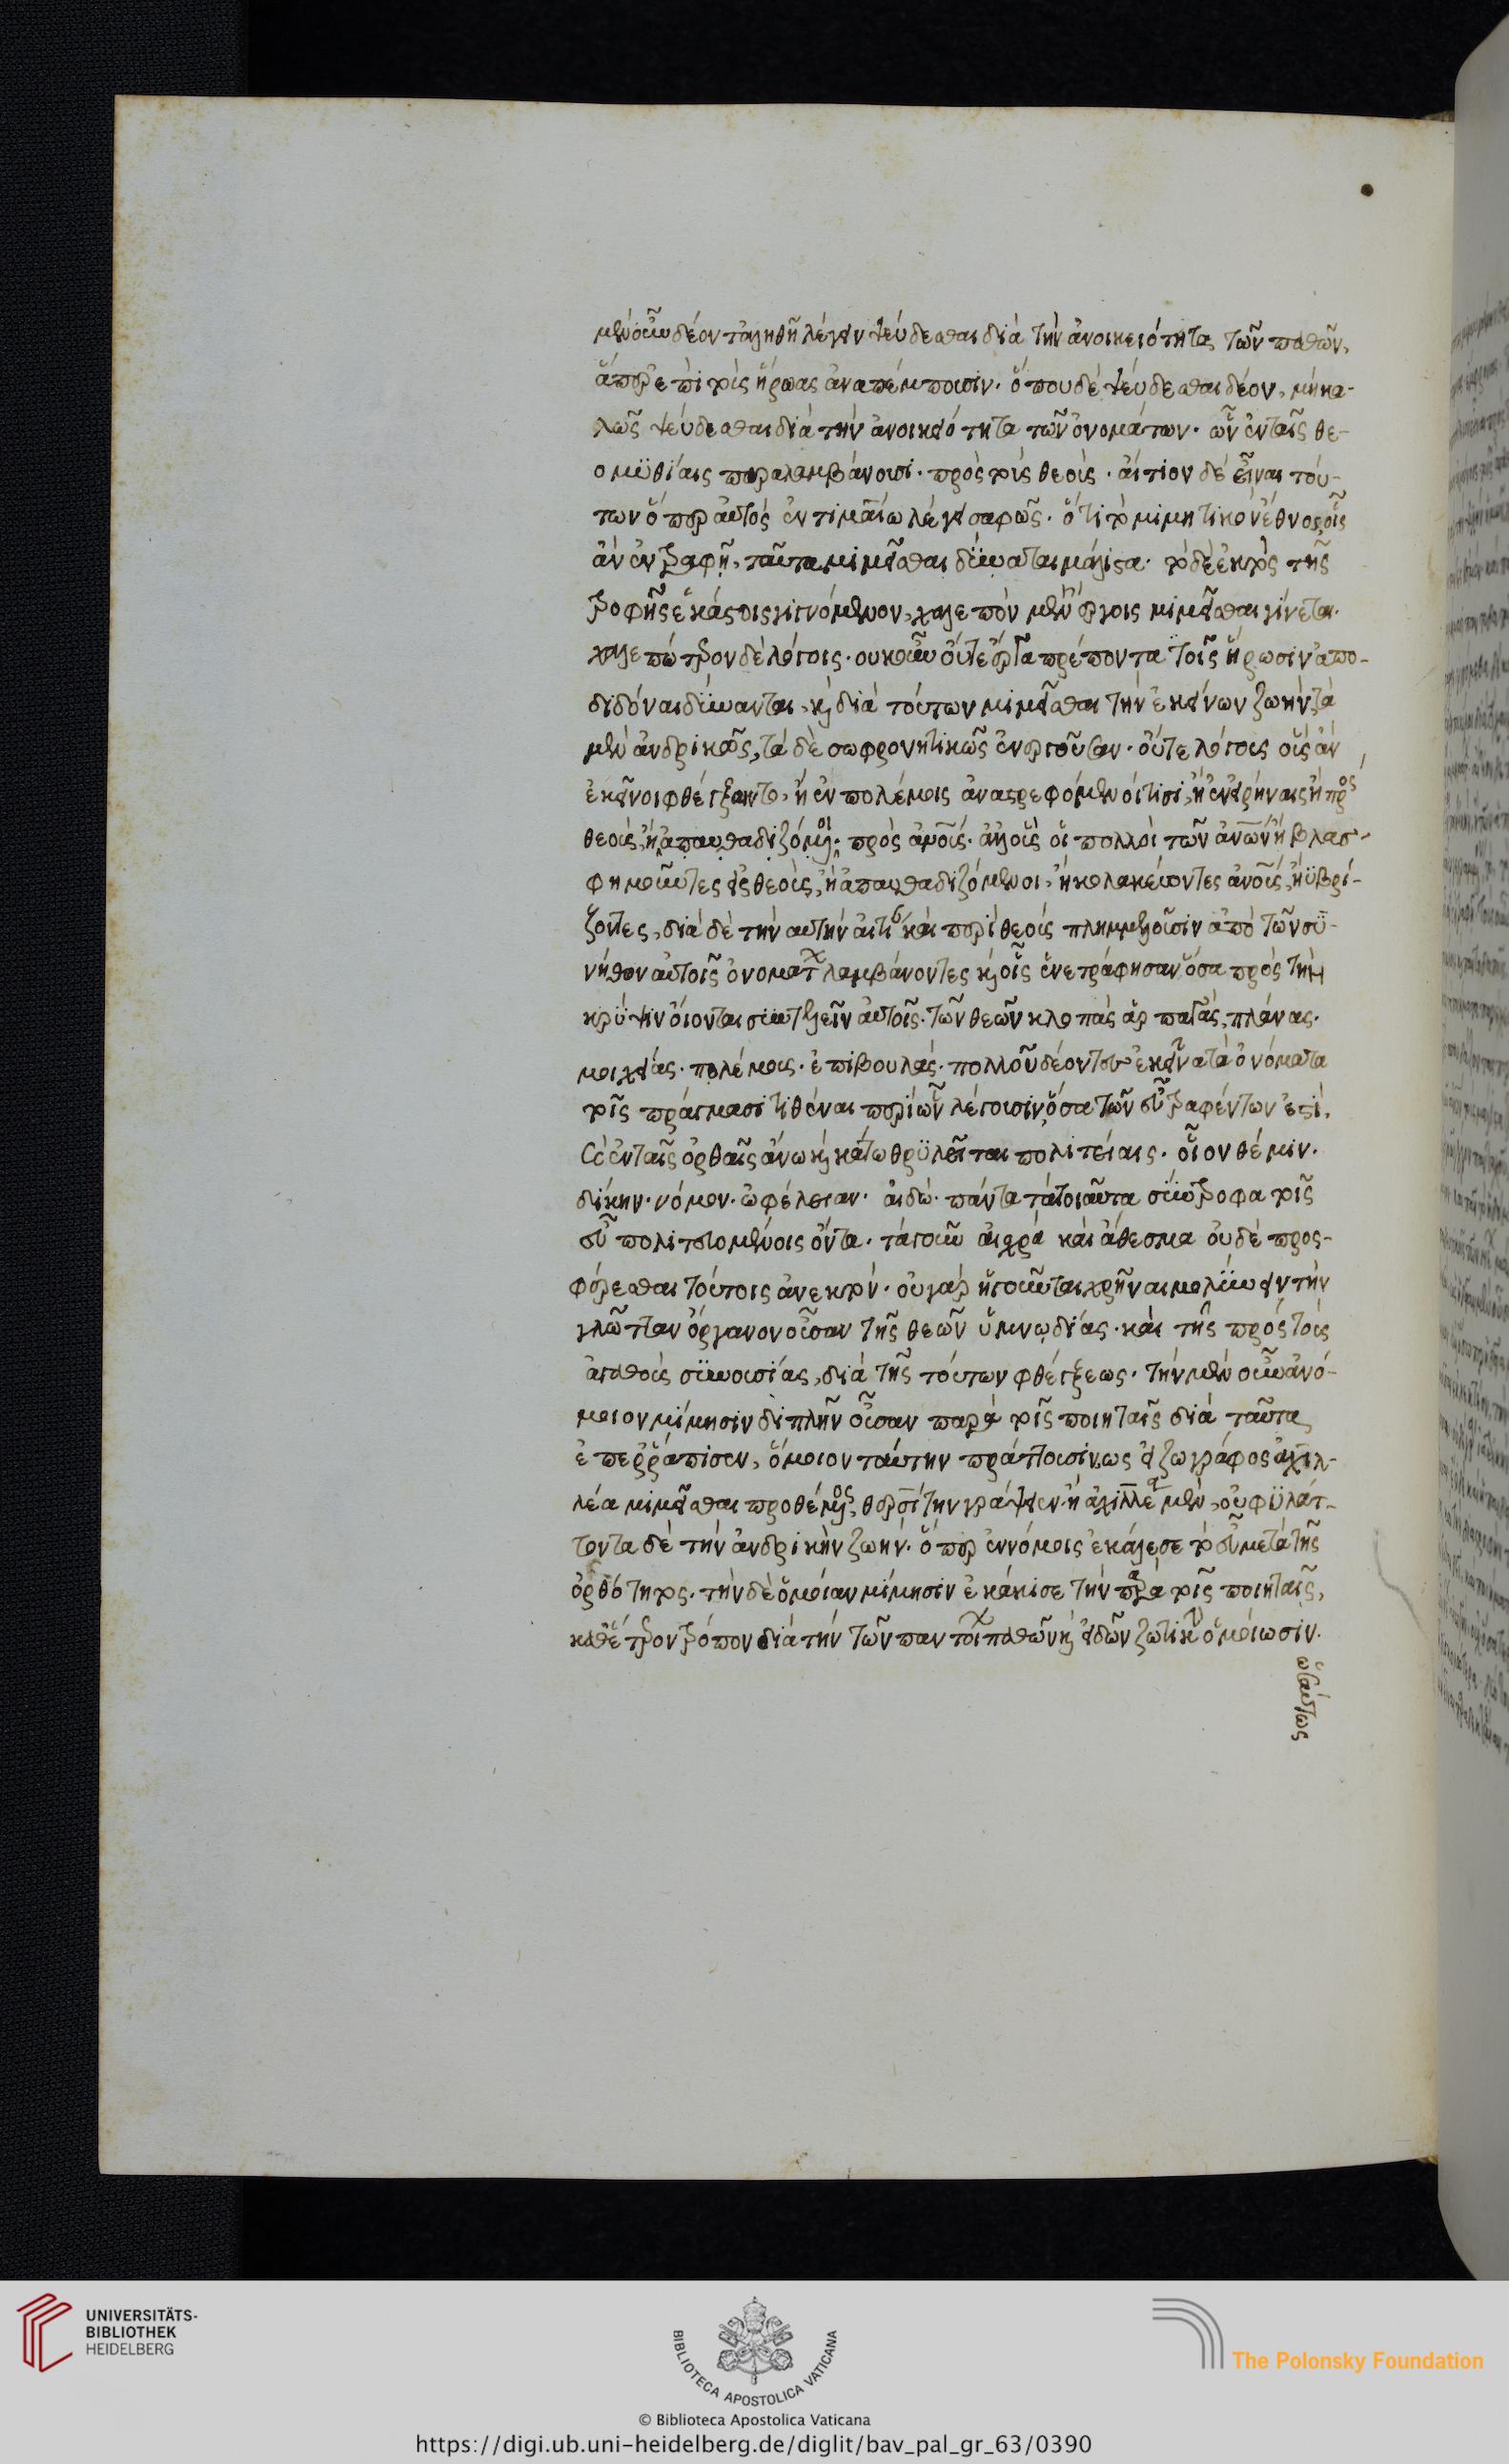 μὲν οὖν δέον τἀληθῆ λέγειν ψεύδεσθαι διὰ τὴν ἀνοικειότητα τῶν παθῶν,
ἅπερ ἐπὶ τοὺς ἥρωας ἀναπέμπουσιν. ὅπου δὲ ψεύδεσθαι δέον, μὴ κα-
λῶς ψεύδεσθαι διὰ τὴν ἀνοικειότητα τῶν ὀνομάτων. ὧν ἐν ταῖς θε-
ομυθίαις παραλαμβάνουσι. πρὸς τοὺς θεούς. αἴτιον δὲ εἶναι τού-
των ὅπερ αὐτὸς ἐν τιμαίω λέγει σαφῶς. ὅτι τὸ μιμητικὸν ἔθνος οἷς
ἂν ἐντραφῇ, ταῦτα μιμεῖσθαι δύναται μάλιστα. τὸ δὲ ἐκτὸς τῆς
τροφῆς ἑκάστοις γιγνόμενον, χαλεπὸν μὲν ἔργοις μιμεῖσθαι γίνεται.
χαλεπώτερον δὲ λόγοις. οὐκοῦν οὔτε ἔργα πρέποντα τοῖς ἥρωσιν ἀπο-
διδόναι δύνανται, καὶ διὰ τούτων μιμεῖσθαι τὴν ἐκείνων ζωὴν τὰ
μὲν ἀνδρικῶς, τὰ δὲ σωφρονητικῶς ἐνεργοῦσαν. οὔτε λόγους οὓς ἂν
ἐκεῖνοι φθέγξαιντο, ἢ ἐν πολέμοις ἀναστρεφόμενοί τισι, ἢ ἐν εἰρήναις ἢ πρὸς
θεοὺς, ἢ ἀπαυθαδιζόμενοι πρὸς ἀνους. ἀλλ' οὓς οἱ πολλοὶ τῶν ἀνων ἢ βλασ-
φημοῦντες εἰς θεοὺς, ἢ ἀπαυθαδιζόμενοι, ἢ κολακεύοντες ἀνους, ἢ ὑβρί-
ζοντες, διὰ δὲ τὴν αὐτὴν αἰτίαν καὶ περὶ θεοὺς πλημμελοῦσιν ἀπὸ τῶν συ-
νήθων αὐτοῖς ὀνομάτων λαμβάνοντες καὶ οἷς ἐνετράφησαν ὅσα πρὸς τὴν
κρύψιν οἴονται συντελεῖν αὐτοῖς. τῶν θεῶν κλοπὰς ἁρπαγὰς, πλάνας.
μοιχείας. πολέμους. ἐπιβουλάς. πολλοῦ δέοντες ἐκεῖνα τὰ ὀνόματα
τοῖς πράγμασι τιθέναι περὶ ὧν λέγουσιν, ὅσα τῶν εὖ τραφέντων ἐστὶ.
καὶ ἐν ταῖς ὀρθαῖς ἄνω καὶ κάτω θρυλεῖται πολιτείαις. οἷον θέμιν.
δίκην. νόμον. ὠφέλειαν. αἰδώ. πάντα τὰ τοιαῦτα σύντροφα τοῖς
εὖ πολιτευομένοις ὄντα. τὰ γοῦν αἰσχρὰ καὶ ἄθεσμα οὐδὲ προς-
φέρεσθαι τούτοις ἀνεκτόν. οὐ γὰρ ἡγοῦνται χρῆναι μολύνειν τὴν
γλῶτταν ὄργανον οὖσαν τῆς θεῶν ὑμνῳδίας. καὶ τῆς πρὸς τοὺς
ἀγαθοὺς συνουσίας, διὰ τῆς τούτων φθέγξεως. τὴν μὲν οὖν ἀνό-
μοιον μίμησιν διπλῆν οὖσαν παρὰ τοῖς ποιηταῖς διὰ ταῦτα
ἐπερράπισεν, ὅμοιον ταύτην πράττουσιν, ὡς εἰ ζωγράφος ἀχιλ-
λέα μιμεῖσθαι προθέμενος, θερσίτην γράψειεν ἢ ἀχιλλέα μὲν, οὐ φυλάτ-
τοντα δὲ τὴν ἀνδρικὴν ζωήν. ὅπερ ἐν νόμοις ἐκάλεσε τὸ εὖ μετὰ τῆς
ὀρθότητος. τὴν δὲ ὁμοίαν μίμησιν ἐκάκισε τὴν παρὰ τοῖς ποιηταῖς,
καθ' ἕτερον τρόπον διὰ τὴν τῶν παντοίων παθῶν καὶ εἰδῶν ζωτικῶν ὁμοίωσιν.
ὡσαύτως
UNIVERSITÄTS-
BIBLIOTHEK
HEIDELBERG
BIBLIOTECA APOSTOLICA VATICANA
The Polonsky Foundation
© Biblioteca Apostolica Vaticana
https://digi.ub.uni-heidelberg.de/diglit/bav_pal_gr_63/0390